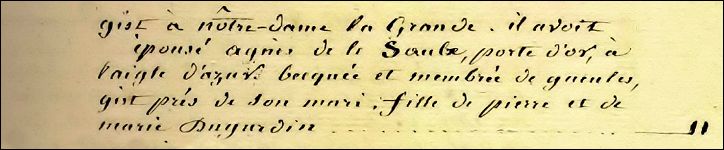 gist à nôtre-dame la Grande. il avoit
épousé agnès de le Saulx, porte d'or, à
l'aigle d'azur becquée et membrée de gueules,
gist près de son mari. fille de pierre et de
marie Dujardin ........................ — 11